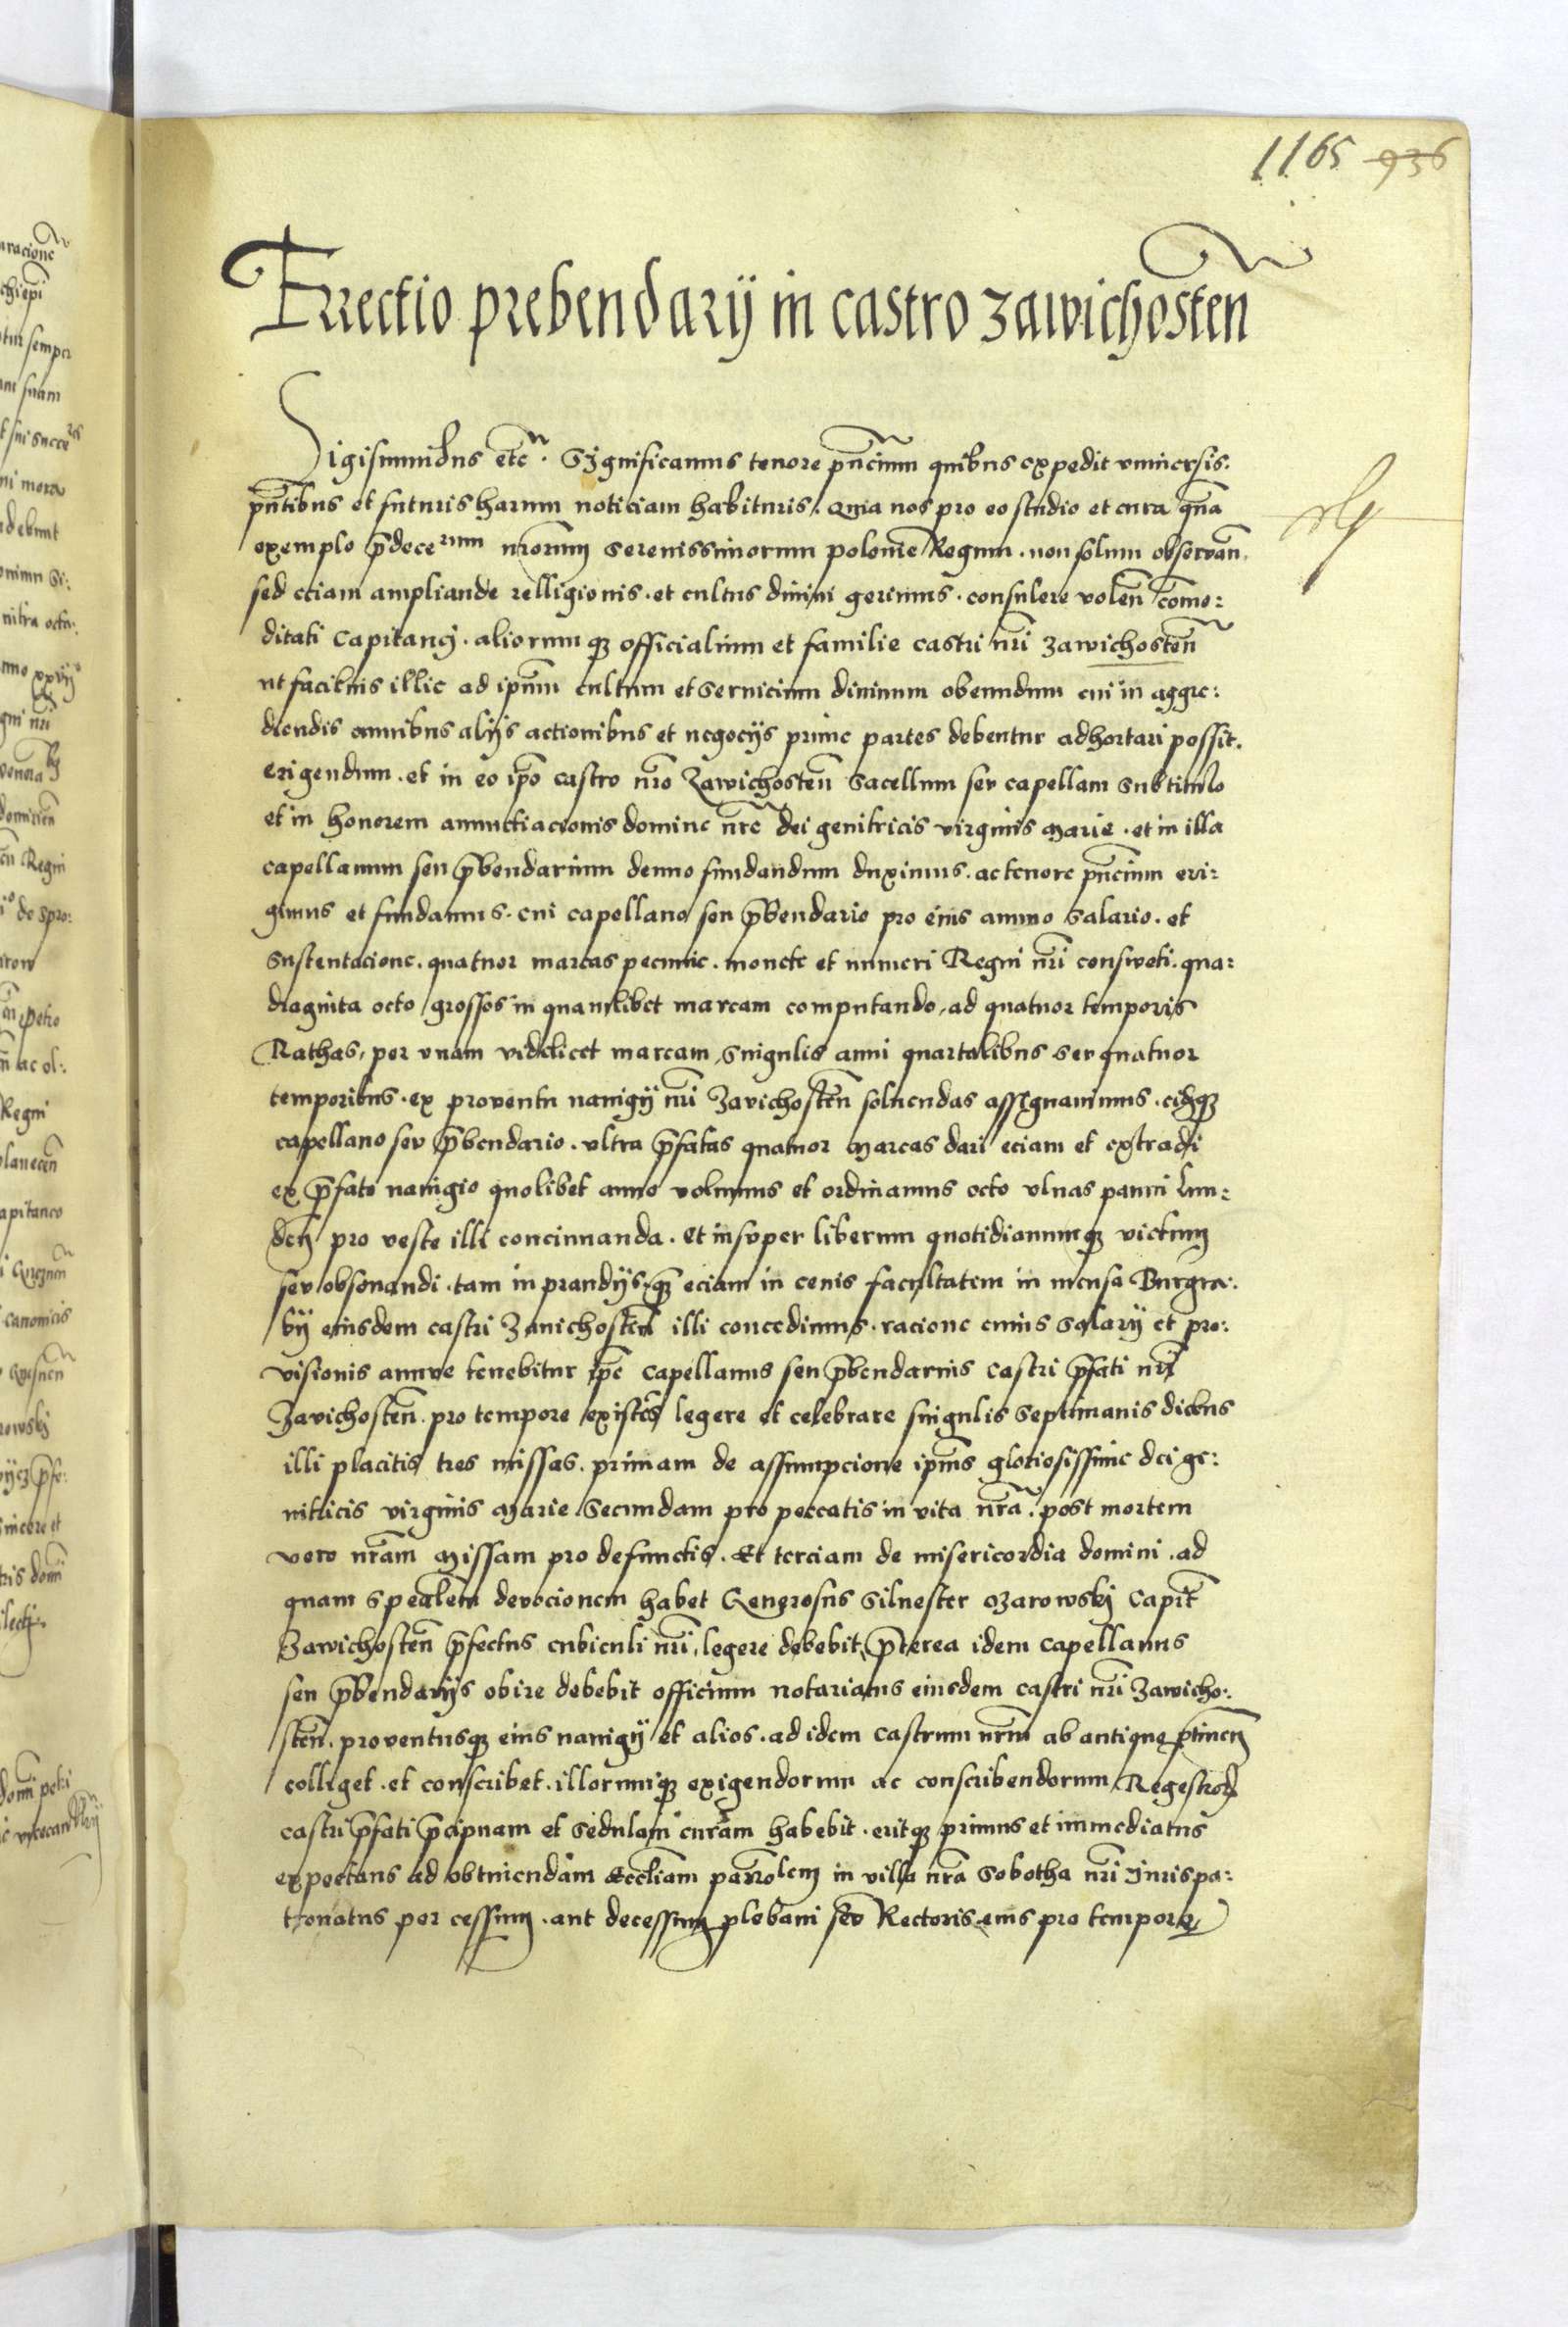 1165 936
Errectio prebendarij in castro zawichosten̄
Sigismundus etc̄. Significamus tenore pñcium quibus expedit vniuersis.
pñtibus et futuris harum noticiam habituris. Quia nos pro eo studio et cura qua
exemplo p̄decerum nr̄orum serenissimorum polonie Regum. non solum obseruan̄.
sed etiam ampliande relligionis. et cultus diuini gerimus. consulere volen̄ com̄o:
ditati Capitanei. aliorumqȝ officialium et familie castri nr̄i zawichosten̄
ut facilius illic ad ip̄um cultum et seruicium diuinum obeundum cui in aggre:
diendis omnibus alijs actionibus et negocijs prime partes debentur adhortari possit.
erigendum. et in eo ip̄o castro nr̄o Zawichosten̄ sacellum seu capellam sub titulo
et in honorem annuctiacionis domine nr̄e dei genitricis virginis Marie. et in illa
capellanum seu p̄bendarium denuo fundandum duximus. ac tenore pñcium eri:
gimus et fundamus. cui capellano seu p̄bendario pro eius annuo salario. et
sustentacione. quatuor marcas pecunie. monete et numeri Regni nr̄i consweti. qua:
dragnita octo grossos in quamlibet marcam computando, ad quatuor temporis
Rathas, per vnam videlicet marcam, singulis anni quartalibus seu quatuor
temporibus. ex prouentu nauigij nr̄i Zavichosten̄ soluendas assignauimus. eidqȝ
capellano seu p̄bendario. vltra p̄fatas quatuor Marcas dari eciam et extradi
ex p̄fato nauigio quolibet anno volumus et ordinamus octo vlnas panni Lun:
den̄ pro veste illi concinnanda. Et insuper liberum quotidianumqȝ victum
seu obsonandi. tam in prandijs, qȝ eciam in cenis facultatem in mensa Burgra:
bij eiusdem castri Zauichosten̄ illi concedimus. racione cuius salarij et pro:
visionis annue tenebitur ip̄e capellanus seu p̄bendarius castri p̄fati nr̄i
Zavichosten̄. pro tempore existēs legere et celebrare singulis septimanis diebus
illi placitis tres missas. primam de assumpcione ip̄ius gloriosissime dei ge:
nitricis virginis Marie. secundam pro peccatis in vita nr̄a. post mortem
vero nr̄am Missam pro defunctis. Et terciam de misericordia domini. ad
quam spealem̄ deuocionem habet Generosus Siluester Ozarowskj Capit̄
Zawichosten̄ p̄fectus cubiculi nr̄i, legere debebit, p̄terea idem capellanus
seu p̄bendarijs obire debebit officium notariatus eiusdem castri nr̄i Zawicho:
sten̄. prouentusqȝ eius nauigij et alios. ad idem castrum nr̄m ab antiquo p̄tinen̄
colliget. et conscribet. illorumqȝ exigendorum ac conscribendorum Regestrorū
castri p̄fati p̄cipuam et sedulam curam habebit. eritqȝ primus et immediatus
expectans ad obtinendam Eccliam parrolem in villa nr̄a Sobotha nr̄i Jurispa:
tronatus per cessum. aut decessum plebani seu Rectoris eius pro tempore